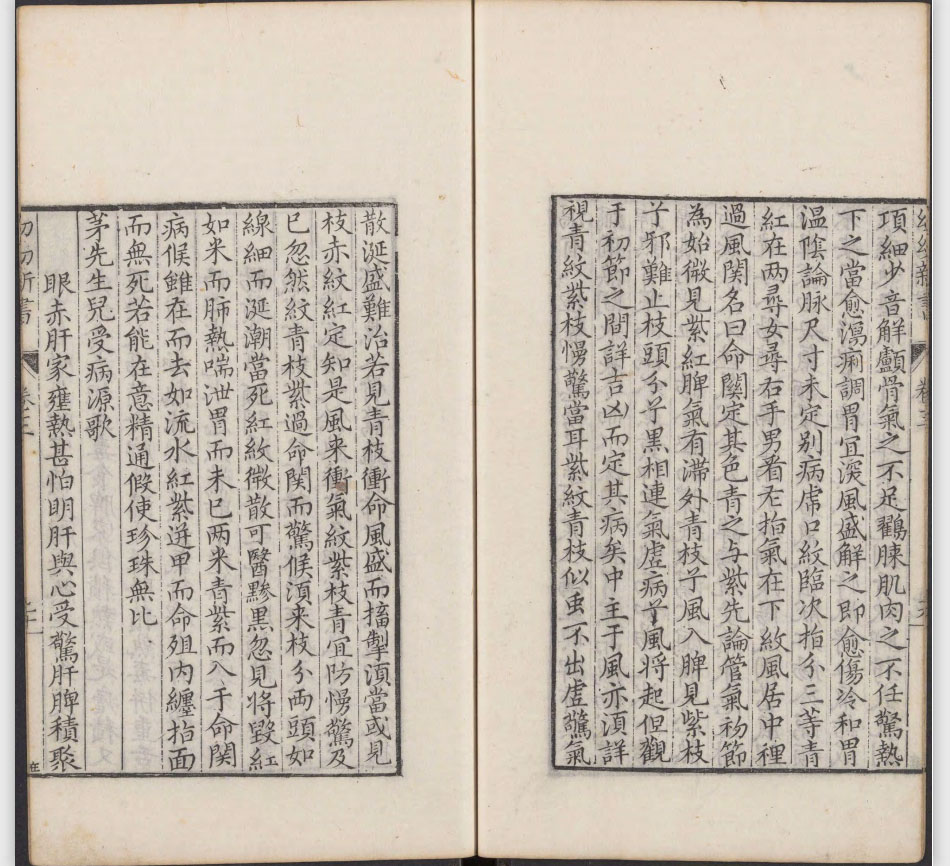 幼幼新書 卷三
項細少音解顱骨氣之不足鸛脨肌肉之不任驚熱
下之當愈瀉痢調胃冝深風盛解之即愈傷冷和胃
温陰論脉尺寸未定别病虎口紋臨次指分三等青
紅在两尋女尋右手男看左指氣在下紋風居中裡
過風関名曰命關定其色青之与紫先論管氣初節
為始微見紫紅脾氣有滯外青枝兮風入脾見紫枝
兮邪難止枝頭分兮黒相連氣虚病兮風将起但觀
于初節之間詳吉凶而定其病矣中主于風亦湏詳
視青紋紫枝慢驚當耳紫紋青枝似虫不出虚驚氣
散涎盛難治若見青枝衝命風盛而搐掣湏當或見
枝赤紋紅定知是風来衝氣紋紫枝青冝防慢驚及
已忽然紋青枝紫過命関而驚候湏来枝分两頭如
線細而涎潮當死紅紋微散可醫黲黒忽見将毀紅
如米而肺熱喘泄胃而未已两米青紫而入于命関
病候雖在而去如流水紅紫迸甲而命殂内纏指面
而無死若能在意精通假使珍珠無比
茅先生兒受病源歌
眼赤肝家壅熱甚怕明肝與心受驚肝脾積聚
幼幼新書 卷三